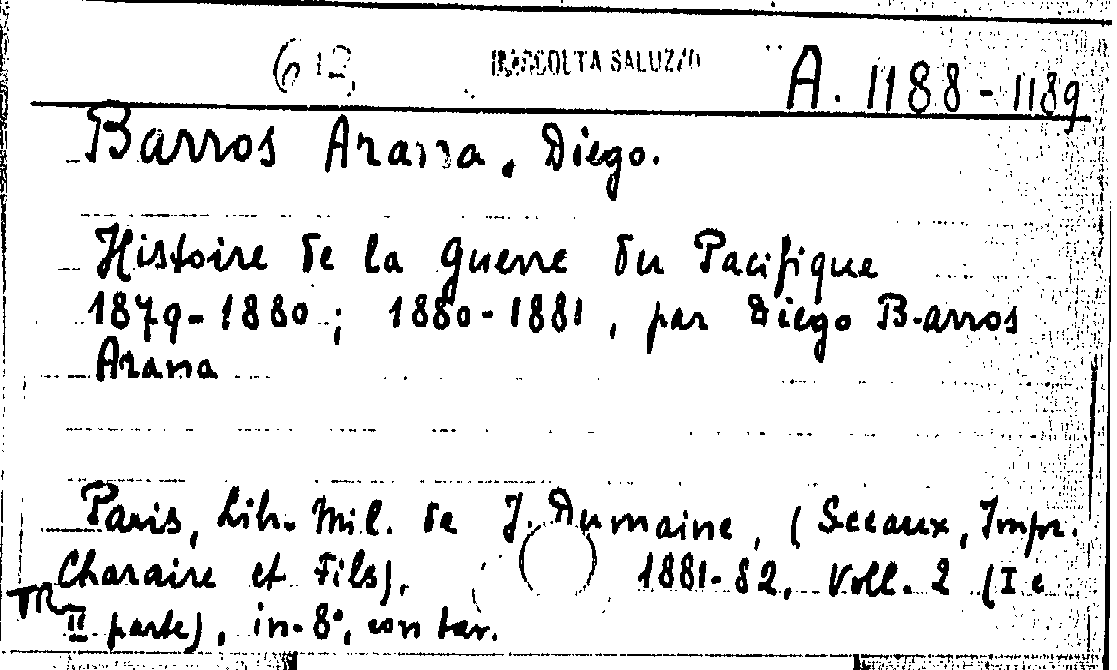 612 RACCOLTA SALUZZO A. 1188-1189
Barros Arana, Diego.
Histoire de la Guerre du Pacifique
1879-1880; 1880-1881, par Diego Barros
Arana
Paris, Lib. Mil. de J. Dumaine, (Sceaux, Impr.
Charaire et Fils), 1881-82, Voll. 2 (I e
TR II parte), in-8°, con tav.